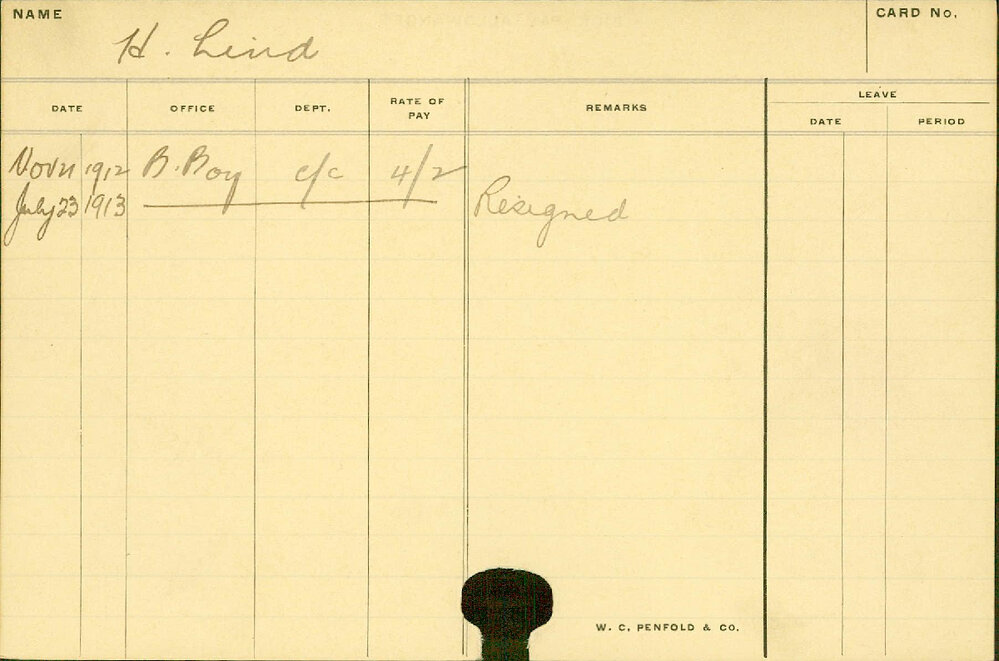 NAME
CARD No.
H. Lind
DATE OFFICE DEPT. RATE OF PAY REMARKS LEAVE
DATE PERIOD
Nov 21 1912 B. Boy c/c 4/2
July 23 1913 Resigned
W. C. PENFOLD & CO.